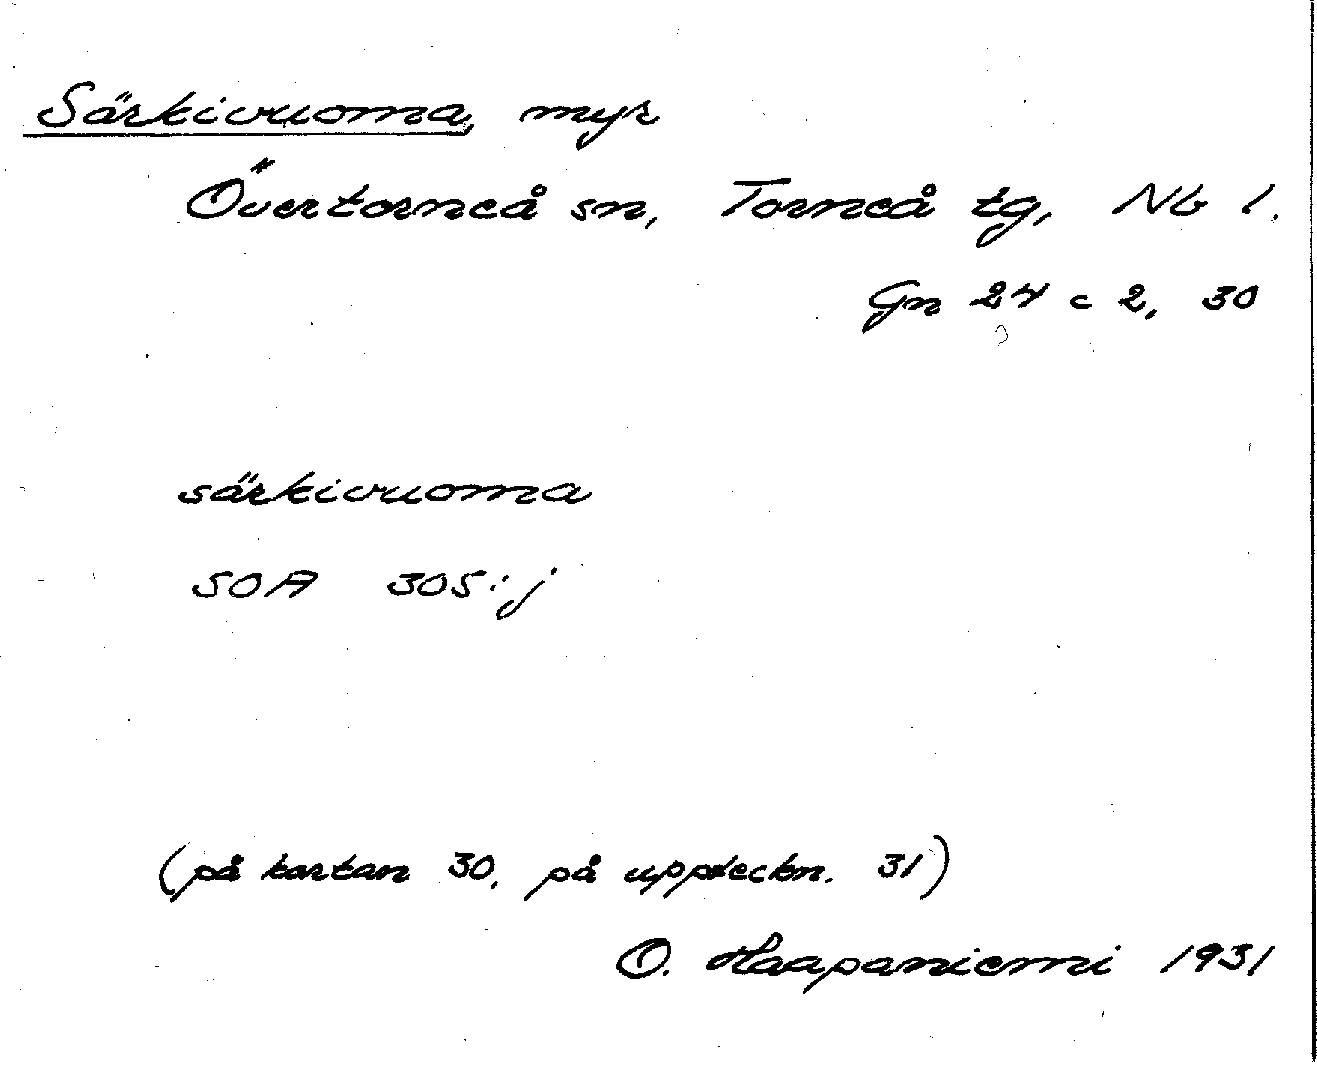 Särkivuoma, myr
Övertorneå sn, Torneå tg, Nb l.
Gn 24 c 2, 30
särkivuoma
SOA 305:j
(på kartan 30, på uppteckn. 31)
O. Haapaniemi 1931